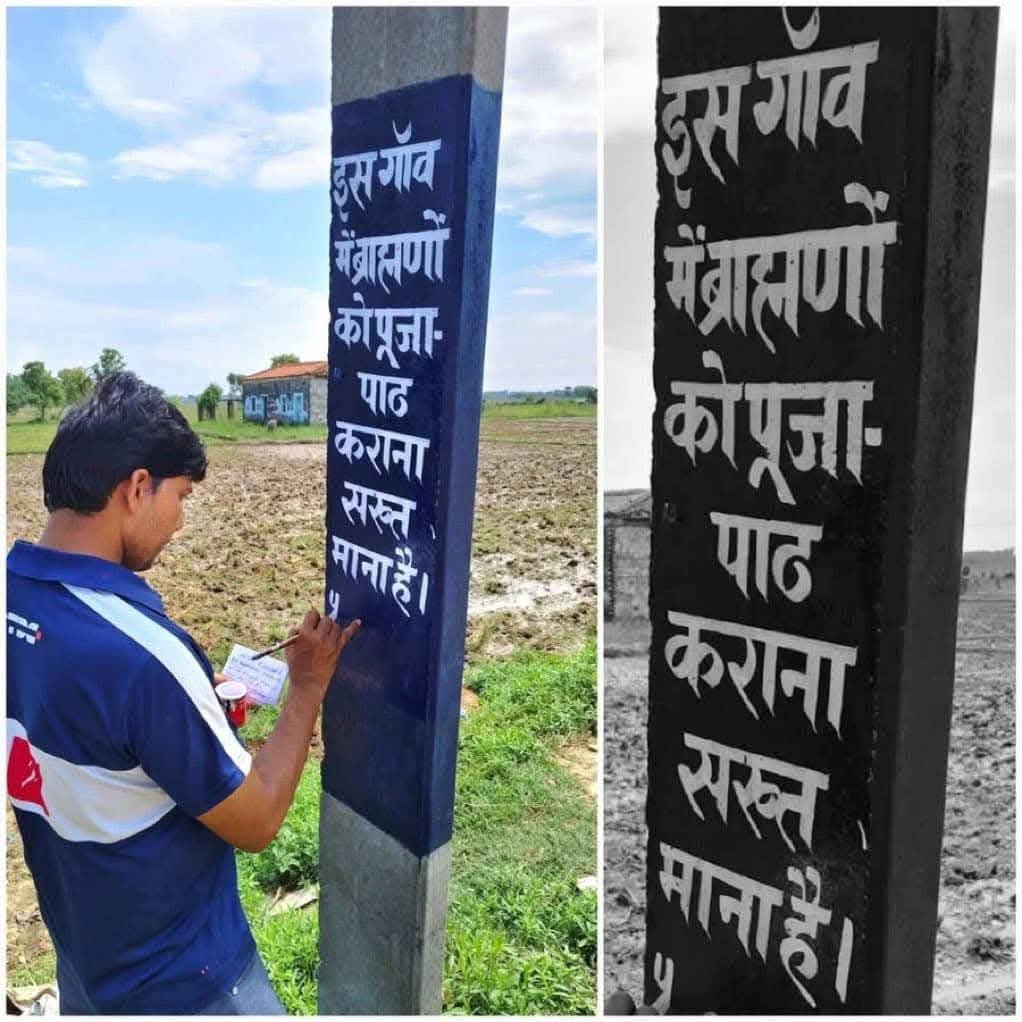 इस गाँव
में ब्राह्मणों
को पूजा-
पाठ
कराना
सख्त
माना है।
५
इस गाँव
में ब्राह्मणों
को पूजा-
पाठ
कराना
सख्त
माना है।
५